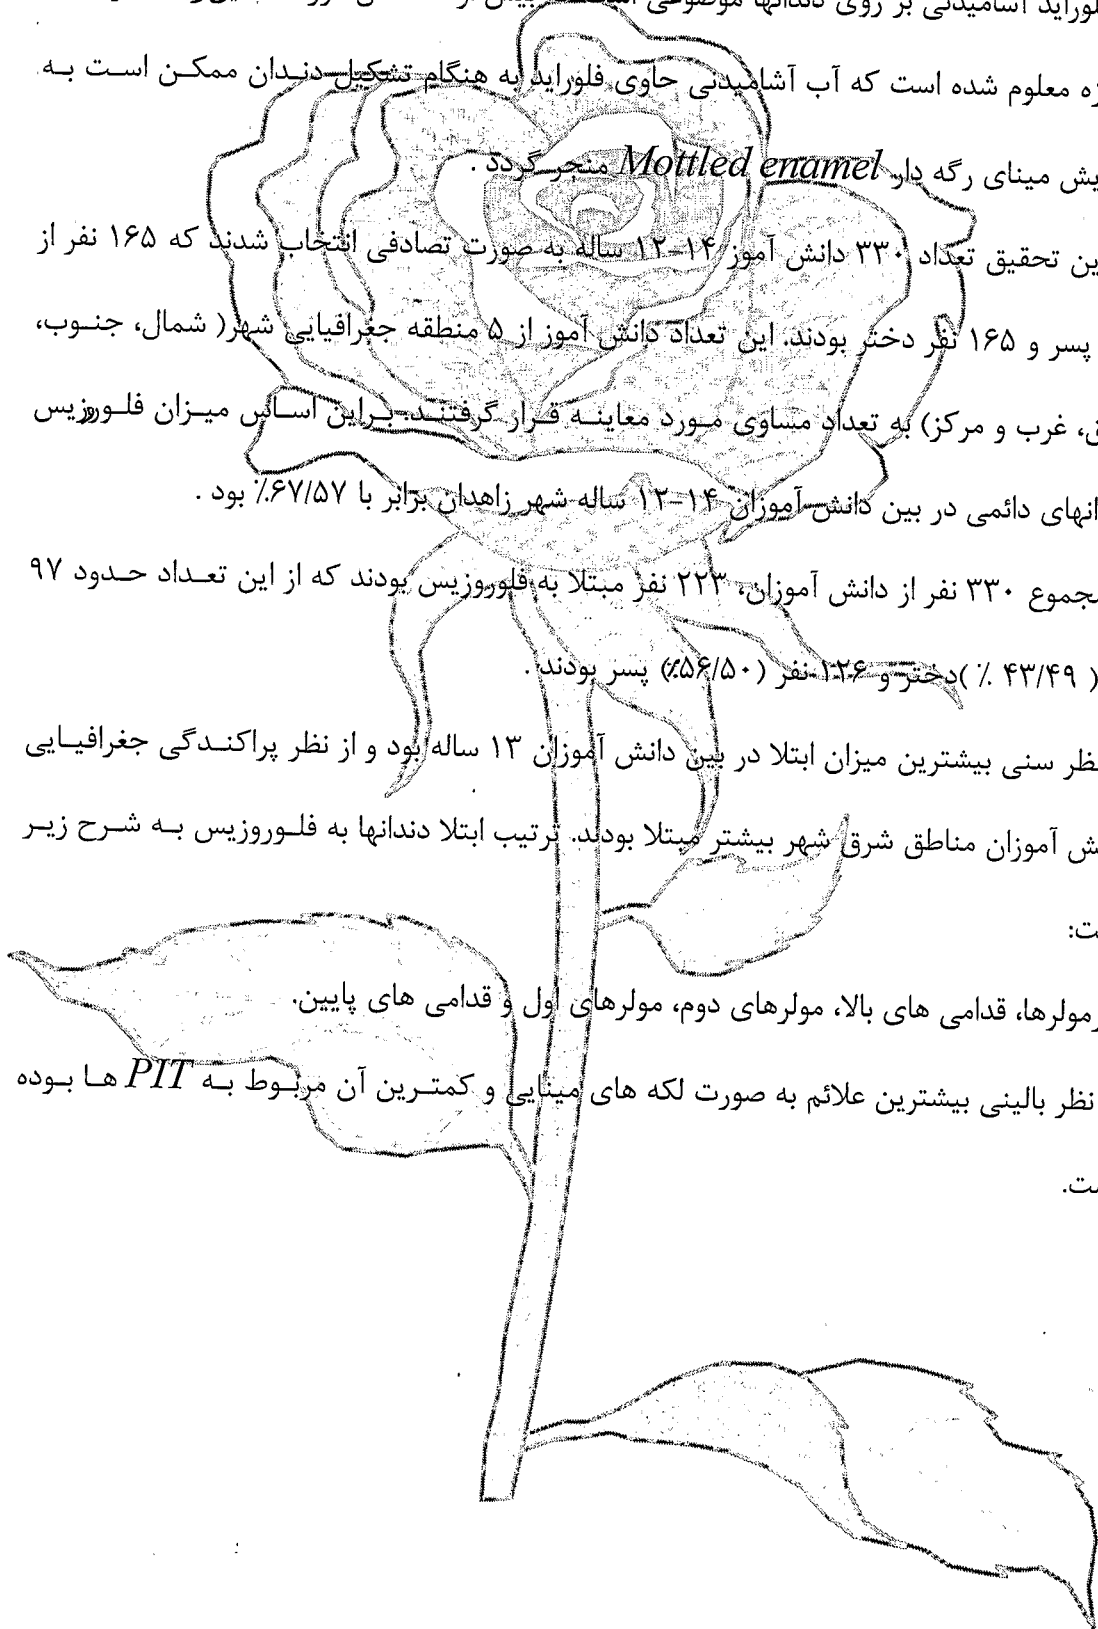 آشامیدنی بر روی دندانها موضوعی
معلوم شده است که آب آشامیدنی حاوی فلوراید به هنگام تشکیل دندان ممکن است به
مینای رگه دار Mottled enamel منجر گردد .
تحقیق تعداد ۳۳۰ دانش آموز ۱۴-۱۲ ساله به صورت تصادفی انتخاب شدند که ۱۶۵ نفر از
پسر و ۱۶۵ نفر دختر بودند. این تعداد دانش آموز از ۵ منطقه جغرافیایی شهر( شمال، جنوب،
غرب و مرکز) به تعداد مساوی مورد معاینه قرار گرفتند. براین اساس میزان فلوروزیس
دائمی در بین دانش آموزان ۱۴-۱۲ ساله شهر زاهدان برابر با ۶۷/۵۷٪ بود .
۳۳۰ نفر از دانش آموزان، ۲۲۳ نفر مبتلا به فلوروزیس بودند که از این تعداد حدود ۹۷
( ۴۳/۴۹ ٪ )دختر و ۱۲۶ نفر (۵۶/۵۰٪) پسر بودند .
سنی بیشترین میزان ابتلا در بین دانش آموزان ۱۳ ساله بود و از نظر پراکندگی جغرافیایی
آموزان مناطق شرق شهر بیشتر مبتلا بودند. ترتیب ابتلا دندانها به فلوروزیس به شرح زیر
قدامی های بالا، مولرهای دوم، مولرهای اول و قدامی های پایین.
نظر بالینی بیشترین علائم به صورت لکه های مینایی و کمترین آن مربوط به PIT ها بوده